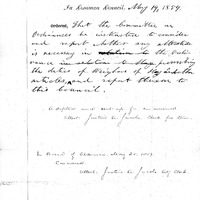 In Common Council, May 14, 1859.
Ordered, That the Committee on
Ordinances be instructed to consider
and report whether any alteration
is necessary in relation to the Ordi-
nance in relation to
the duties of Weighers of Hay and other
articles and report thereon to
this Council.
Adopted and sent up for concurrence
Attest,
In Board of Aldermen May 20, 1859
Concurred
Attest, City Clerk